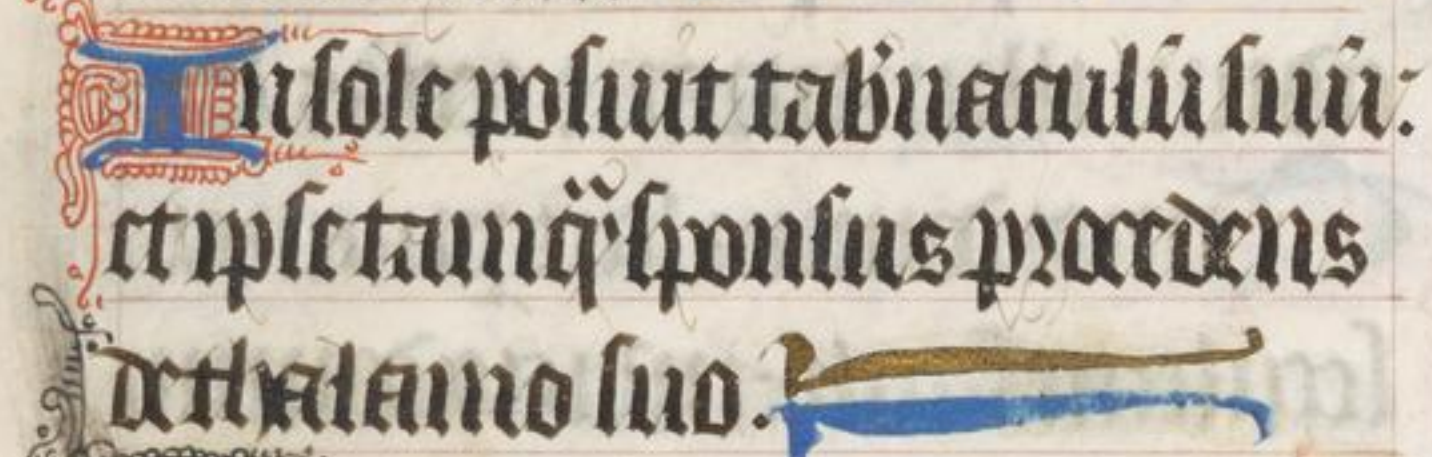 In sole posuit tab̾naculū suū:
et ipse tamq̄ͣ sponsus procedens
de thalamo suo.